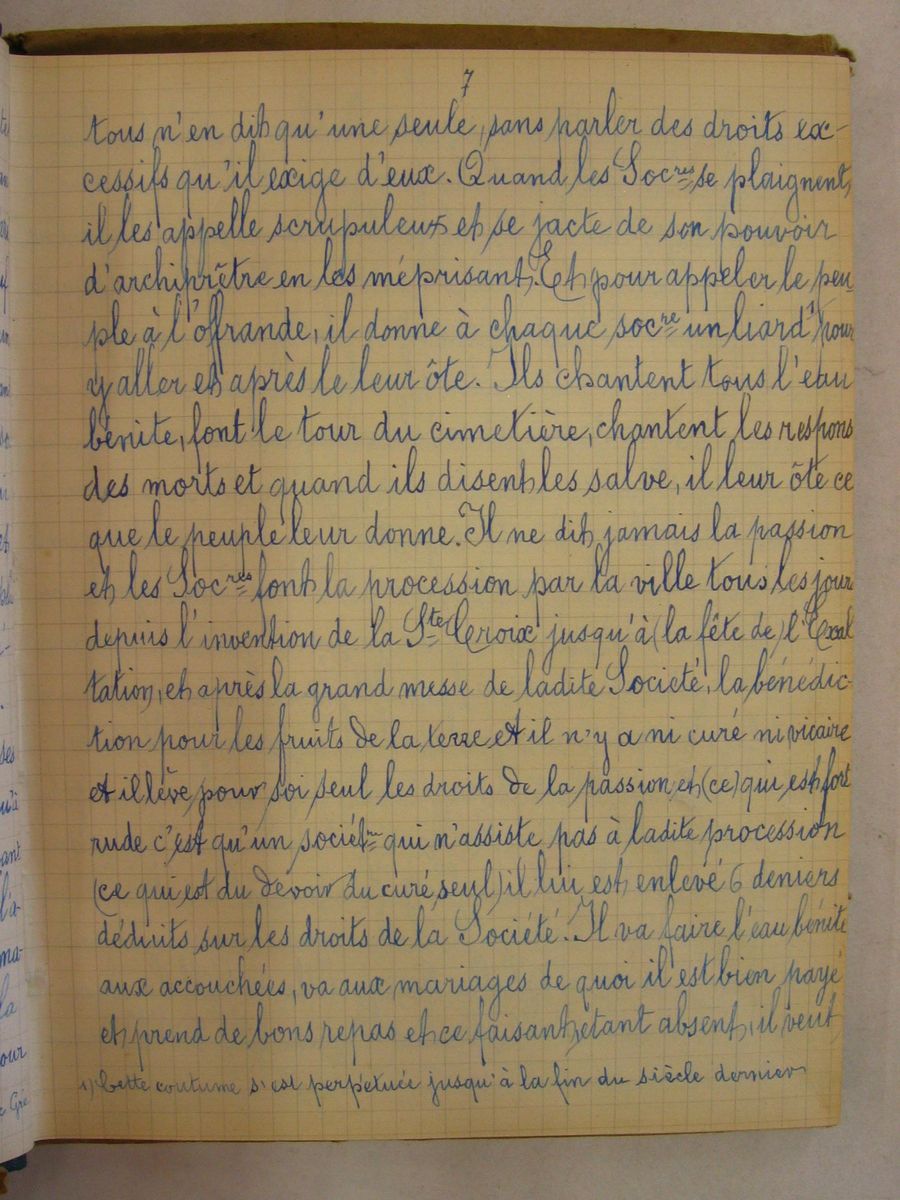 7
tous n'en dit qu'une seule, sans parler des droits ex-
cessifs qu'il exige d'eux. Quand les Socres se plaignent,
il les appelle scrupuleux et se jacte de son pouvoir
d'archiprêtre en les méprisant. Et pour appeler le peu-
ple à l'offrande, il donne à chaque socre un liard¹ pour
y aller et après le leur ôte. Ils chantent tous l'eau
bénite, font le tour du cimetière, chantent les respons
des morts et quand ils disent les salve, il leur ôte ce
que le peuple leur donne. Il ne dit jamais la passion
et les Socres font la procession par la ville tous les jours
depuis l'invention de la Ste Croix jusqu'à (la fête de) l'Exal
tation, et après la grand messe de ladite Société, la bénédic-
tion pour les fruits de la terre et il n'y a ni curé ni vicaire
et il lève pour soi seul les droits de la passion et (ce) qui est fort
rude c'est qu'un sociétre qui n'assiste pas à ladite procession
(ce qui est du devoir du curé seul) il lui est enlevé 6 deniers
déduits sur les droits de la Société. Il va faire l'eau bénite
aux accouchées, va aux mariages de quoi il est bien payé
et prend de bons repas et ce faisant, étant absent, il veut
1) Cette coutume s'est perpétuée jusqu'à la fin du siècle dernier